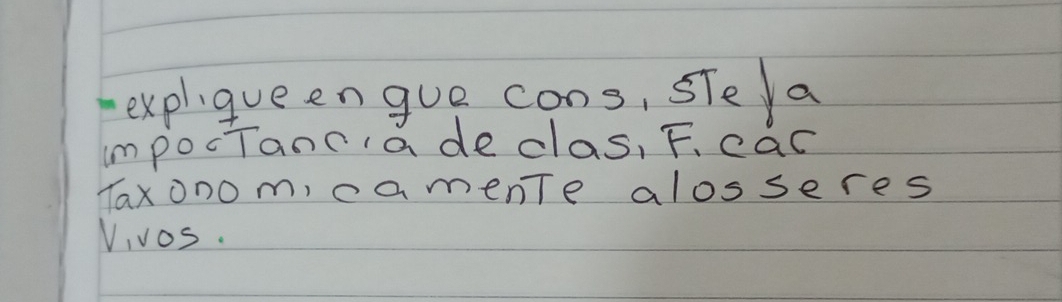 - explique en que consiste la
importancia de clasificar
Taxonomicamente a los seres
Vivos.